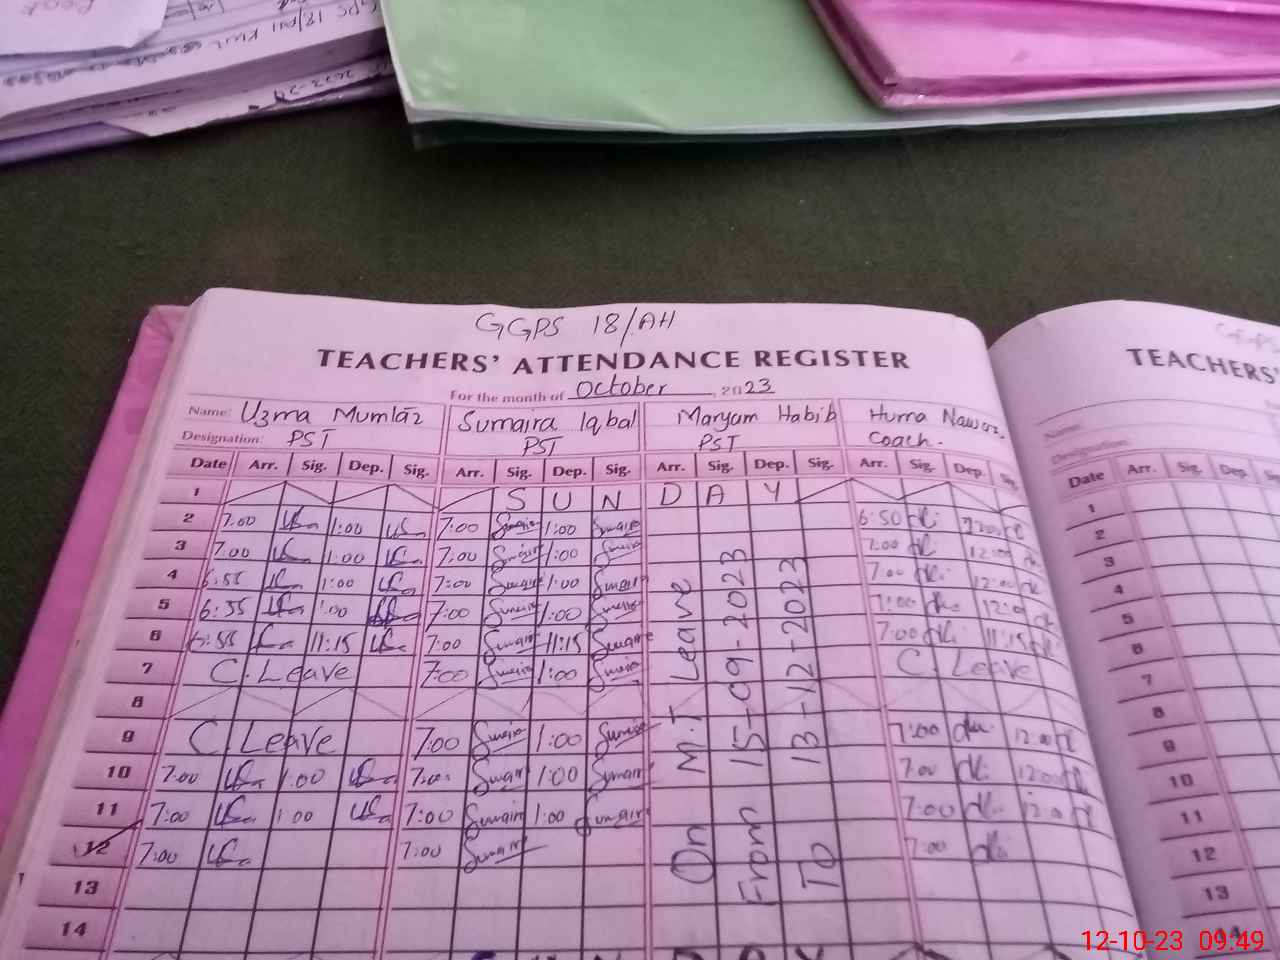 GPS 18/AH
2023-24
GGPS 18/AH
TEACHERS' ATTENDANCE REGISTER
For the month of October, 2023
Name: Uzma Mumtaz Sumaira Iqbal Maryam Habib Huma Nawaz
Designation: PST PST PST Coach.
Date Arr. Sig. Dep. Sig. Arr. Sig. Dep. Sig. Arr. Sig. Dep. Sig. Arr. Sig. Dep. Sig.
1 S U N D A Y
2 7:00 1:00 7:00 Sumaira 1:00 Sumaira 6:50 12:00
3 7:00 1:00 7:00 Sumaira 1:00 Sumaira 7:00 12:00
4 6:55 1:00 7:00 Sumaira 1:00 Sumaira 7:00 12:00
5 6:55 1:00 7:00 Sumaira 1:00 Sumaira 7:00 12:00
6 6:55 11:15 7:00 Sumaira 11:15 Sumaira 7:00 11:15
7 C.Leave 7:00 Sumaira 1:00 Sumaira C.Leave
8
9 C.Leave 7:00 Sumaira 1:00 Sumaira 7:00 12:00
10 7:00 1:00 7:00 Sumaira 1:00 Sumaira 7:00 12:00
11 7:00 1:00 7:00 Sumaira 1:00 Sumaira 7:00 12:00
12 7:00 7:00 Sumaira 7:00
13
14
On M.T Leave
From 15-09-2023
To 13-12-2023
TEACHERS'
Name:
Designation:
Date Arr. Sig. Dep.
1
2
3
4
5
6
7
8
9
10
11
12
13
14
12-10-23 09:49